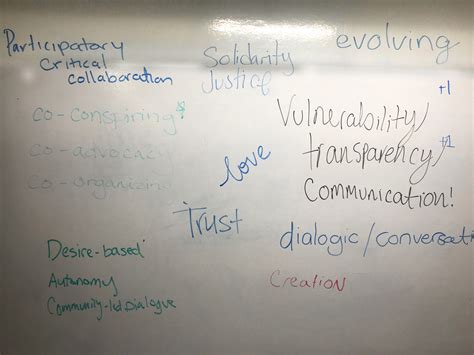 Participatory
Critical
collaboration
Solidarity
Justice
evolving
+1
co-conspiring
co-advocacy
co-organizing
Vulnerability/
transparency/
+1
Communication!
love
Trust
dialogic/conversati
Desire-based
Autonomy
Community-led Dialogue
Creation